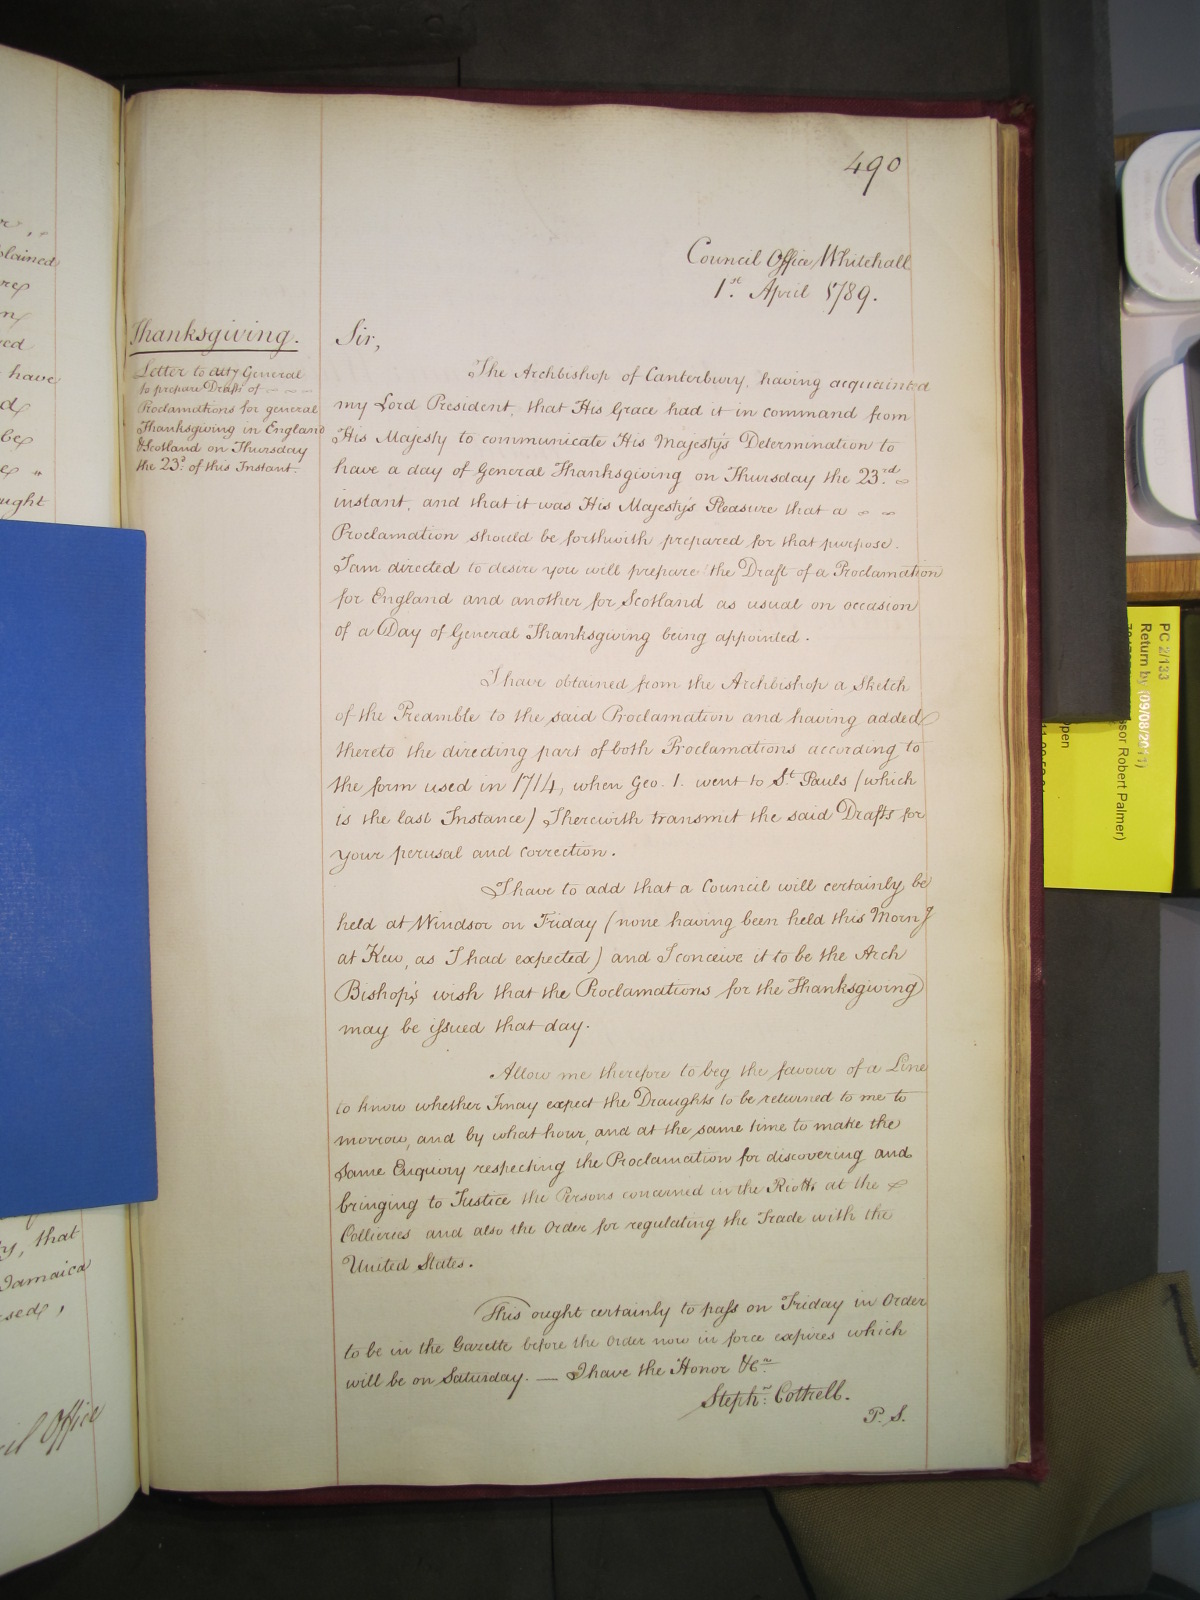 490
Council Office Whitehall
1st April 1789.
Thanksgiving.
Letter to atty General
to prepare Draft of
Proclamations for general
Thanksgiving in England
& Scotland on Thursday
the 23d of this Instant.
Sir,
The Archbishop of Canterbury, having acquainted
my Lord President, that His Grace had it in command from
His Majesty to communicate His Majesty's Determination to
have a day of General Thanksgiving on Thursday the 23rd
instant, and that it was His Majesty's Pleasure that a
Proclamation should be forthwith prepared for that purpose.
I am directed to desire you will prepare the Draft of a Proclamation
for England and another for Scotland as usual on occasion
of a Day of General Thanksgiving being appointed.
I have obtained from the Archbishop a Sketch
of the Preamble to the said Proclamation and having added
thereto the directing part of both Proclamations according to
the form used in 1714, when Geo. 1. went to St. Pauls (which
is the last Instance) I herewith transmit the said Drafts for
your perusal and correction.
I have to add that a Council will certainly be
held at Windsor on Friday (none having been held this Morng
at Kew, as I had expected) and I conceive it to be the Arch
Bishop's wish that the Proclamations for the Thanksgiving
may be issued that day.
Allow me therefore to beg the favour of a Line
to know whether I may expect the Draughts to be returned to me to
morrow, and by what hour, and at the same time to make the
same Enquiry respecting the Proclamation for discovering and
bringing to Justice the Persons concerned in the Riotts at the
Collieries and also the Order for regulating the Trade with the
United States.
This ought certainly to pass on Friday in Order
to be in the Gazette before the Order now in force expires which
will be on Saturday. — I have the Honor &c
Stephn. Cottrell.
P. S.
plained
have
be
ought
that
Jamaica
Office
PC 2/133
Return by (09/08/2011)
sor Robert Palmer)
pen